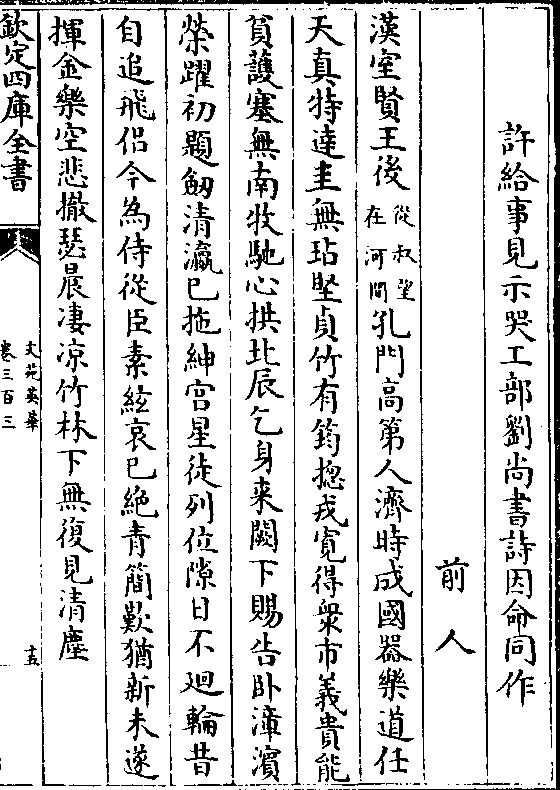 許給事見示哭工部劉尚書詩因命同作
前人
漢室賢王後從叔望在河間孔門高第人濟時成國器樂道任
天真特達圭無玷堅貞竹有筠揔戎寛得衆市義貴能
貧護塞無南牧馳心拱北辰乞身来闕下賜告卧漳濱
榮躍初題劒清瀛已拖紳宫星徒列位隙日不廻輪昔
自追飛侣今為侍從臣素絃哀已絶青簡歎猶新未遂
揮金樂空悲撤瑟晨凄凉竹林下無復見清塵
欽定四庫全書
文苑英華
卷三百三
十五